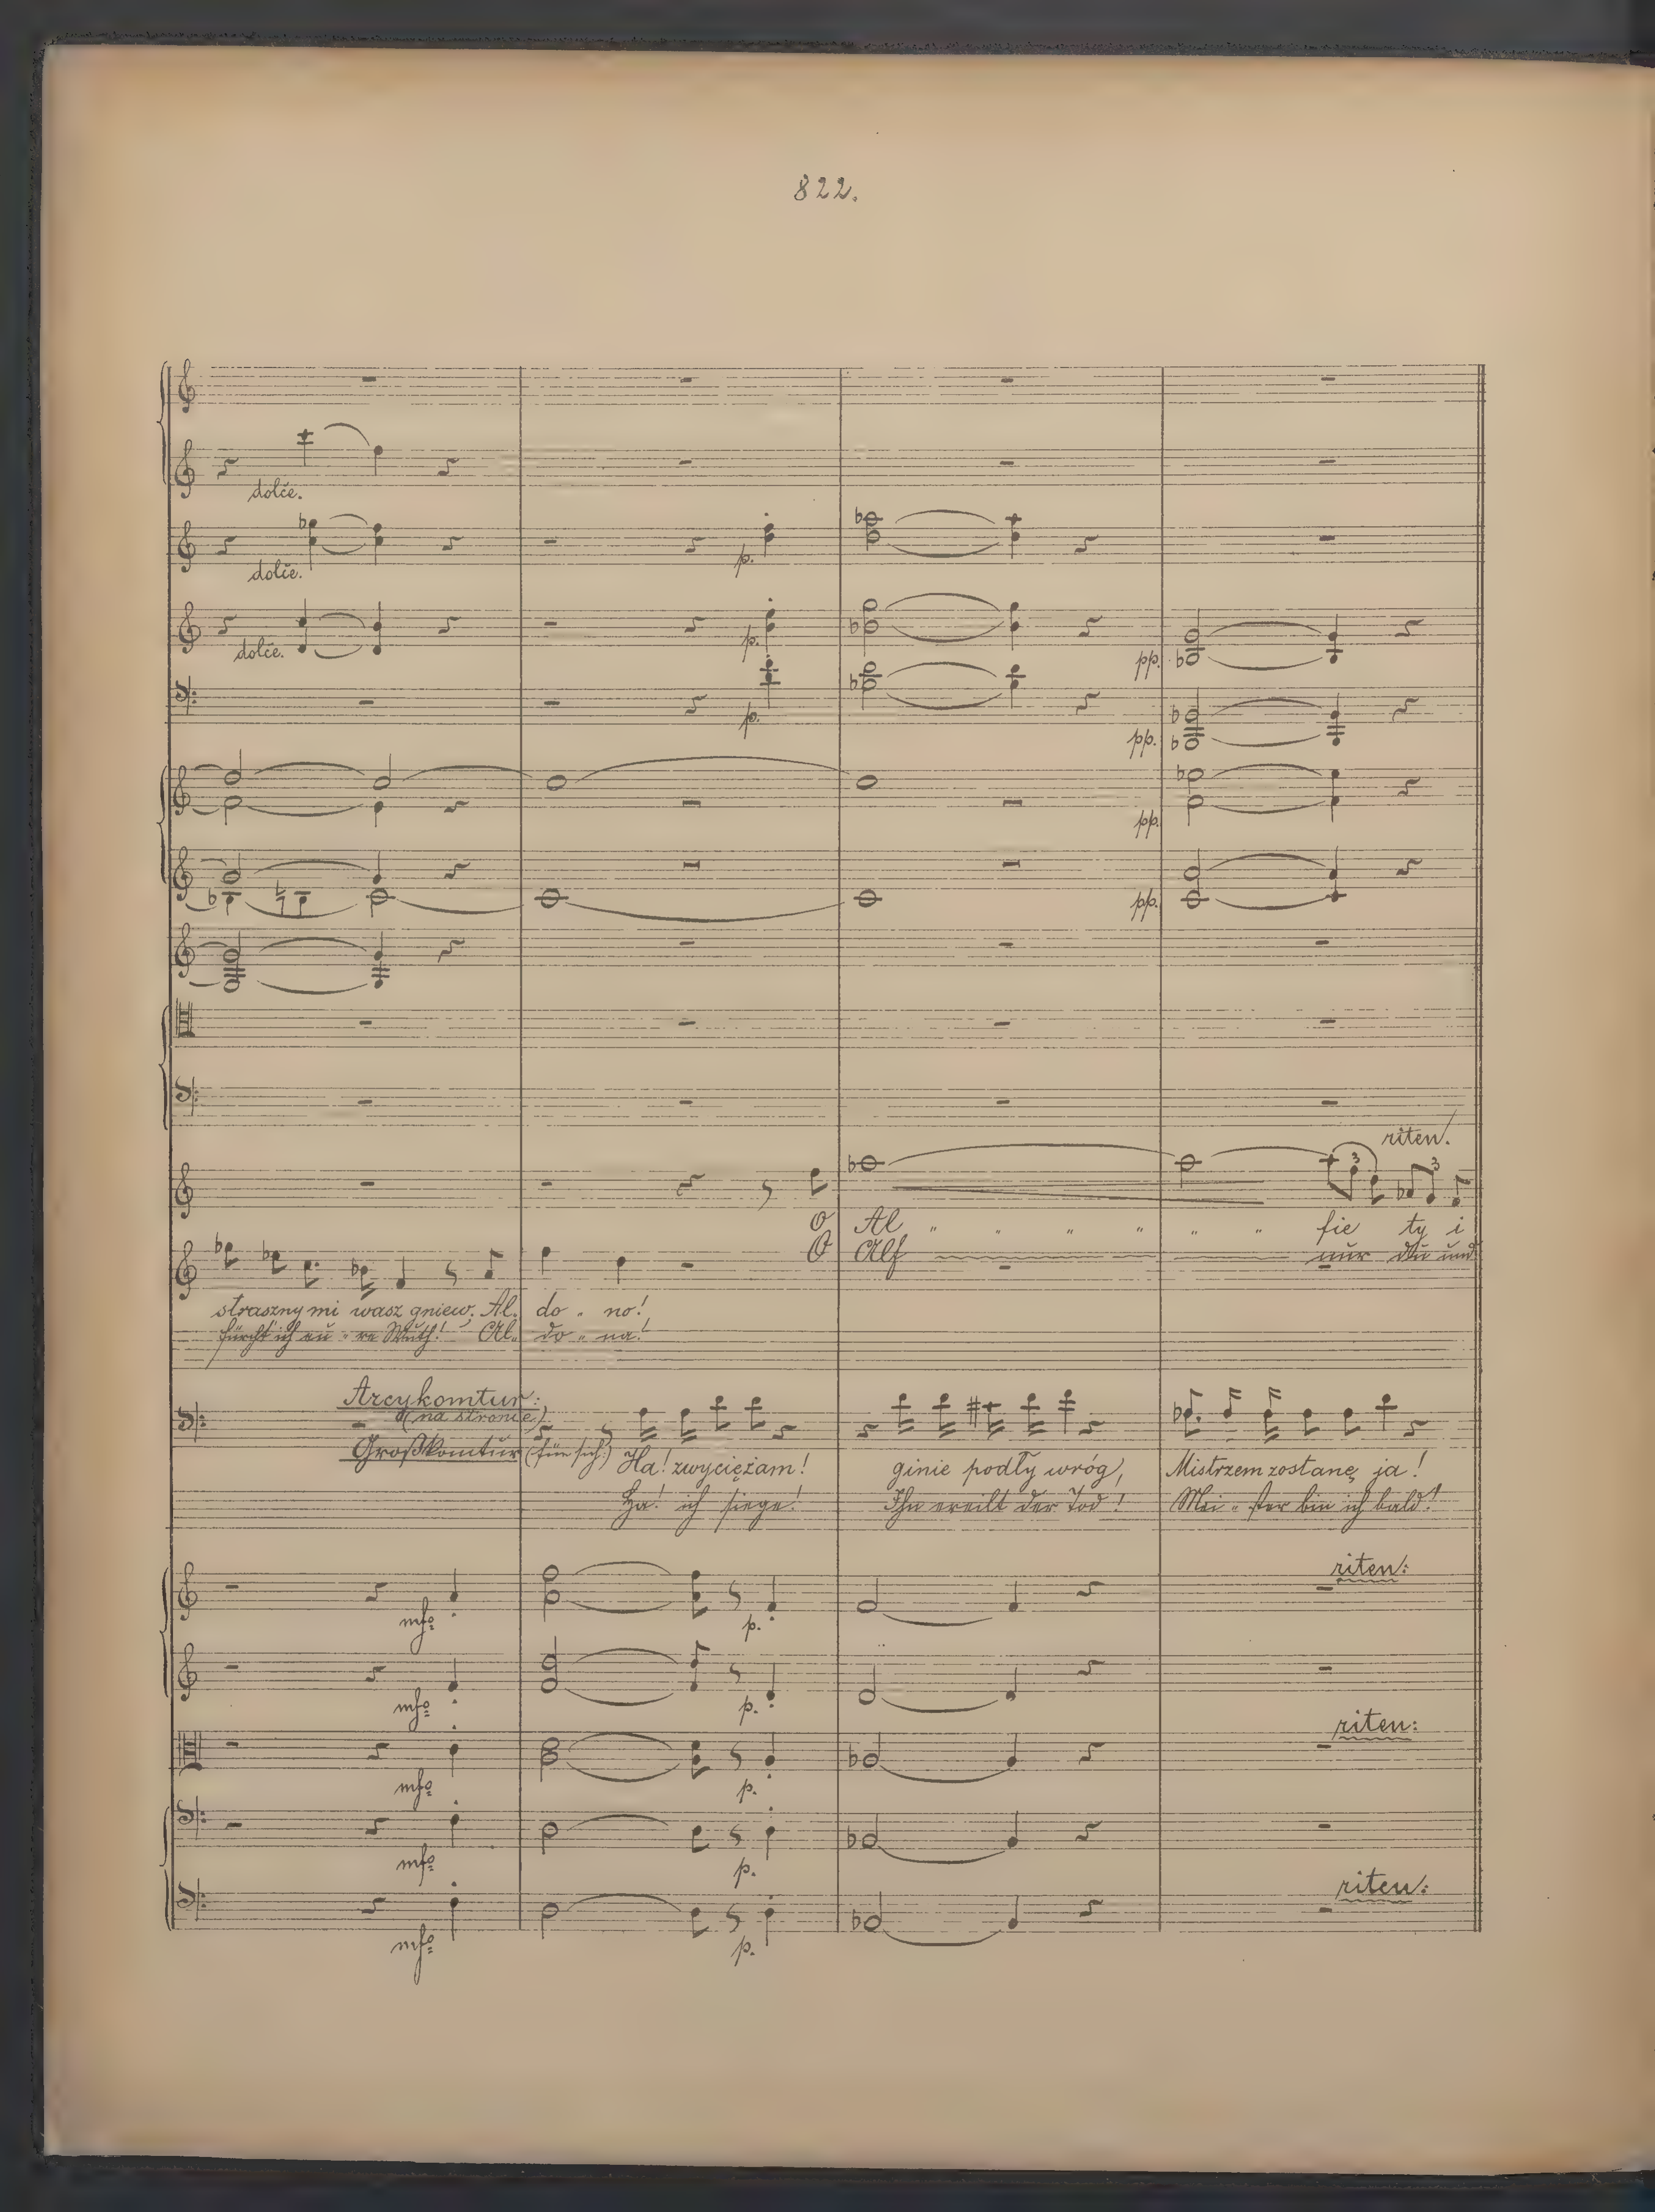 822.
dolce.
dolce.
p.
dolce.
p.
pp.
p.
pp.
pp.
pp.
riten.
3 3
O Al " " " " " " fie ty i
O Alf nur du und
straszny mi wasz gniew, Al. do - no!
fürcht' ich eu - re Wuth! Al. do - na!
Arcykomtur:
(na stronie)
Großkomtur (für sich:)
Ha! zwyciężam! ginie podły wróg, Mistrzem zostanę ja!
Ha! ich siege! Ihn ereilt der Tod! Mei - ster bin ich bald!
riten:
mfo p.
mfo p.
riten:
mfo p.
mfo p.
riten:
mfo p.